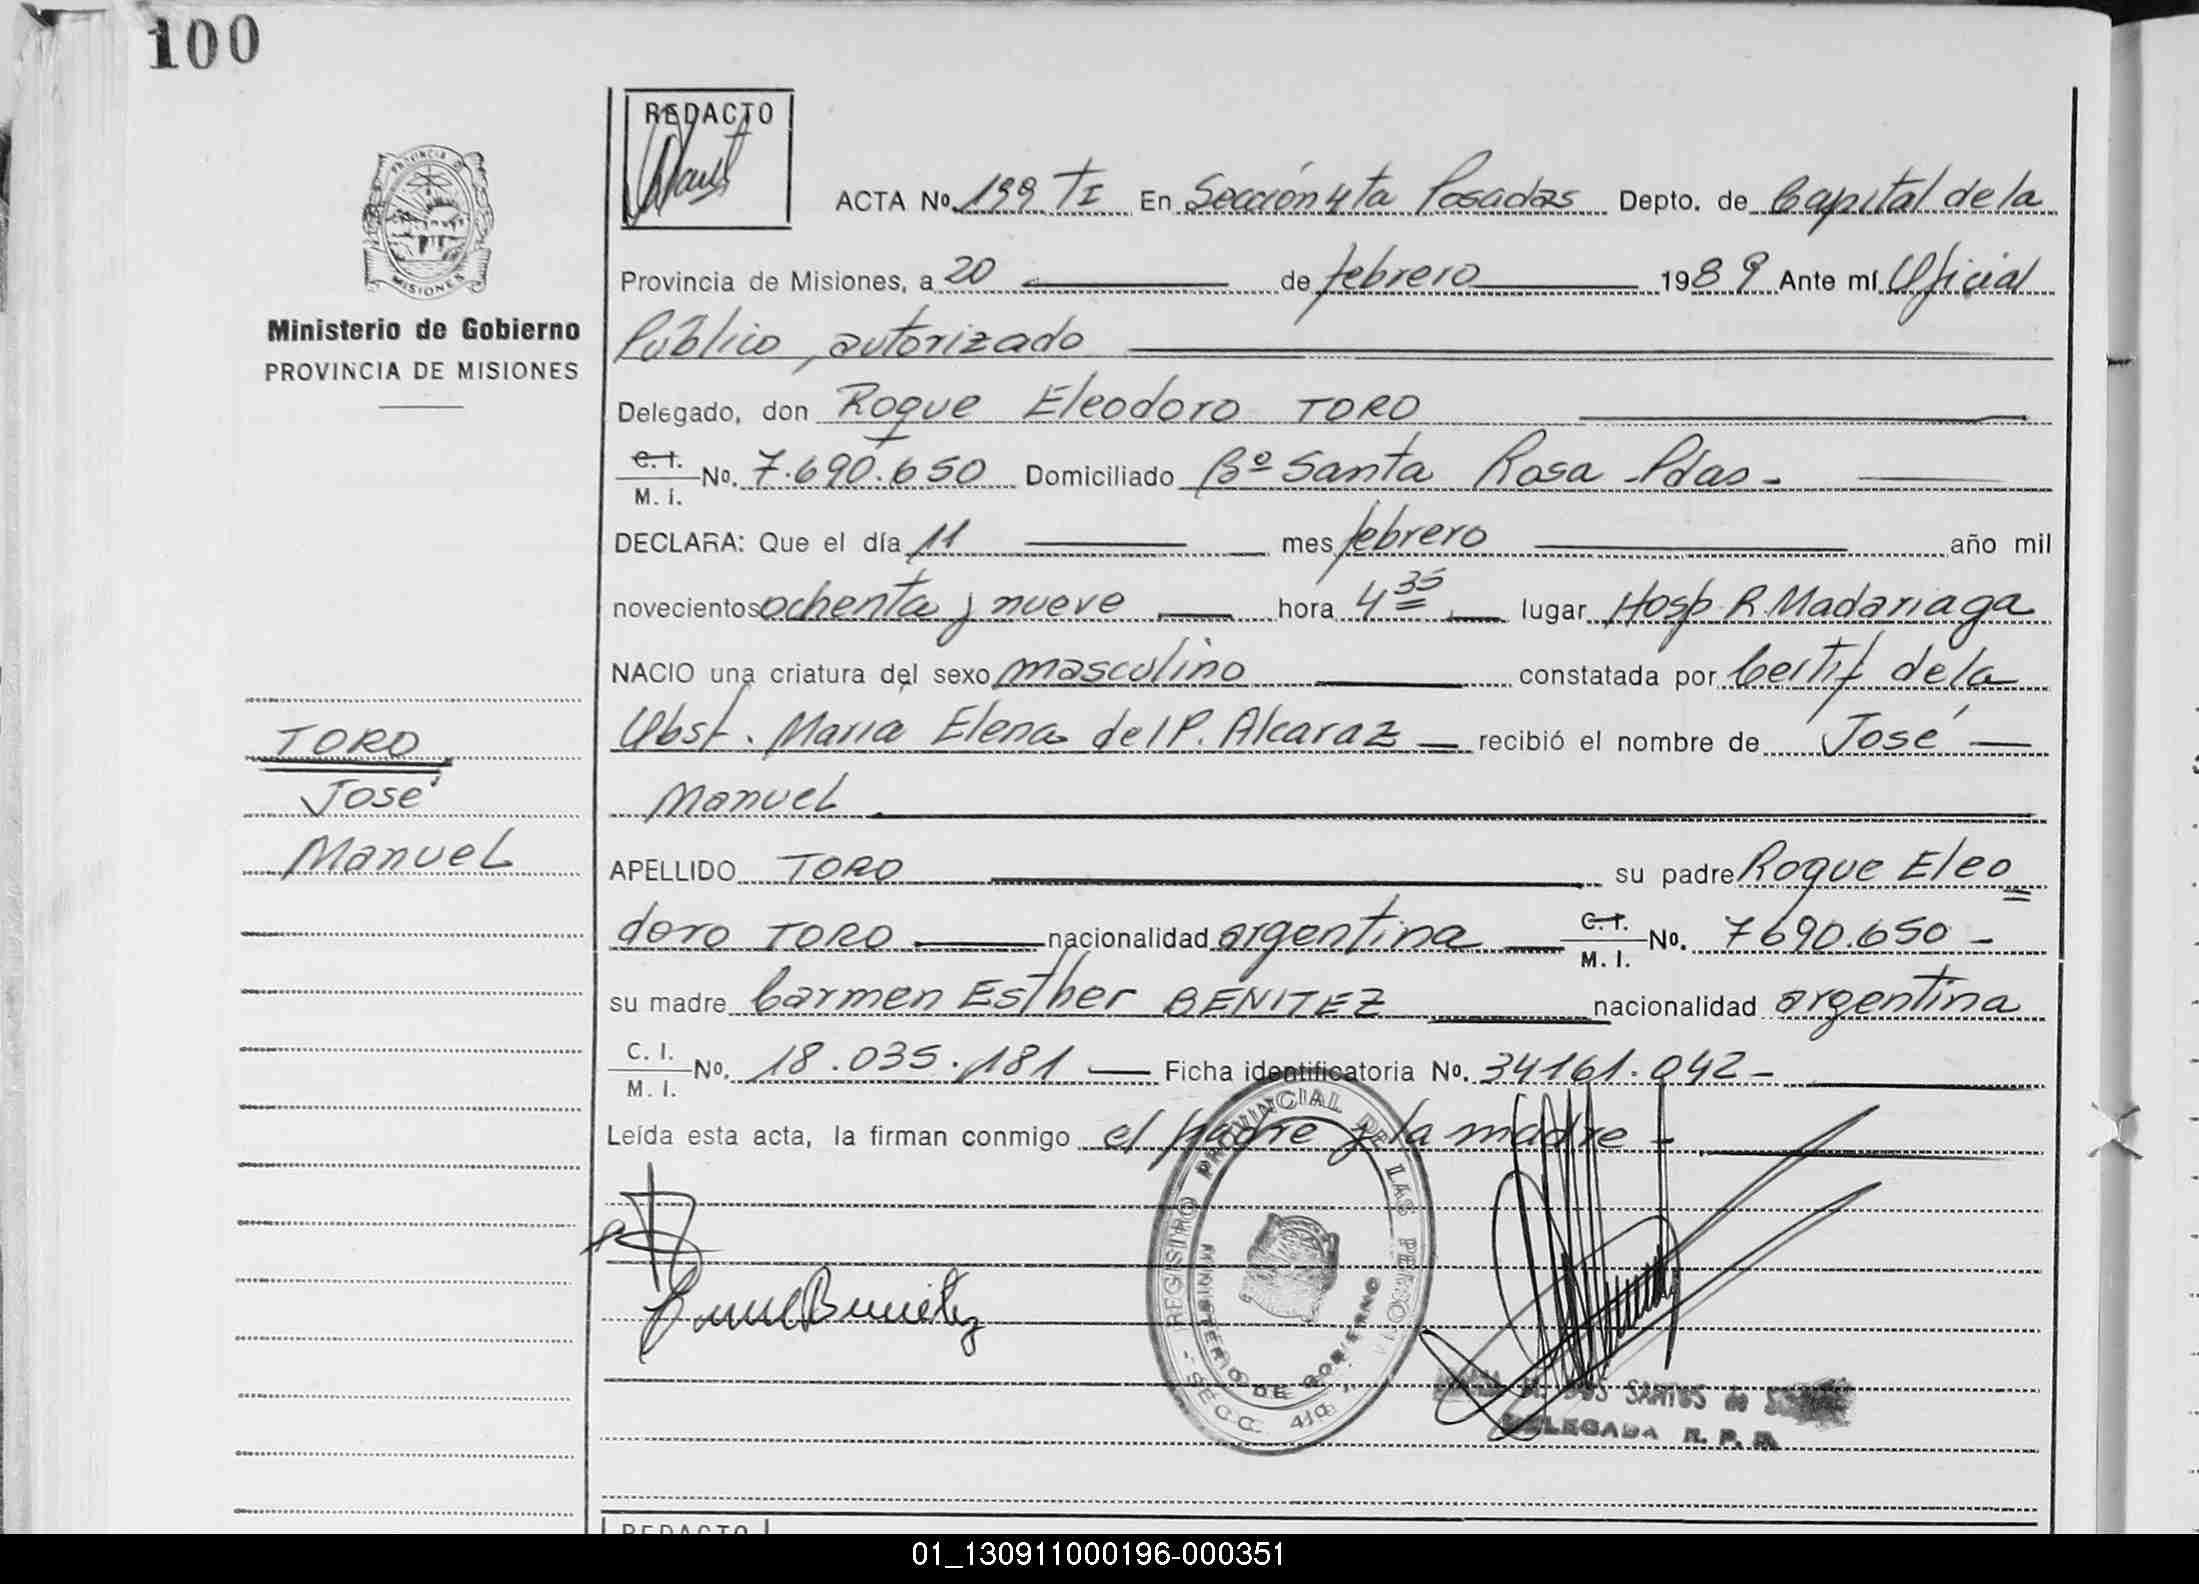 100
REDACTO
ACTA Nº 199 TI En Sección 4ta Posadas Depto. de Capital de la
Provincia de Misiones, a 20 de febrero 1989 Ante mí Oficial
Público, autorizado
Delegado, don Roque Eleodoro TORO
C. I.
M. I. Nº. 7.690.650 Domiciliado Bº Santa Rosa - Pdas -
DECLARA: Que el día 11 mes febrero año mil
novecientos ochenta y nueve hora 4 35 lugar Hosp R. Madariaga
NACIO una criatura del sexo masculino constatada por Certif de la
Obst. Maria Elena del P. Alcaraz recibió el nombre de José
Manuel
APELLIDO TORO su padre Roque Eleo
doro TORO nacionalidad argentina C. I.
M. I. Nº. 7690.650 -
su madre Carmen Esther BENITEZ nacionalidad argentina
C. I.
M. I. Nº. 18.035.181 Ficha identificatoria Nº. 34161.042 -
Leída esta acta, la firman conmigo el padre y la madre -
MISIONES
Ministerio de Gobierno
PROVINCIA DE MISIONES
TORO
José
Manuel
REGISTRO PROVINCIAL DE LAS PERSONAS
MINISTERIO DE GOBIERNO
- SECC. 4ta
DOS SANTOS de
DELEGADA R. P. P.
REDACTO
01_130911000196-000351